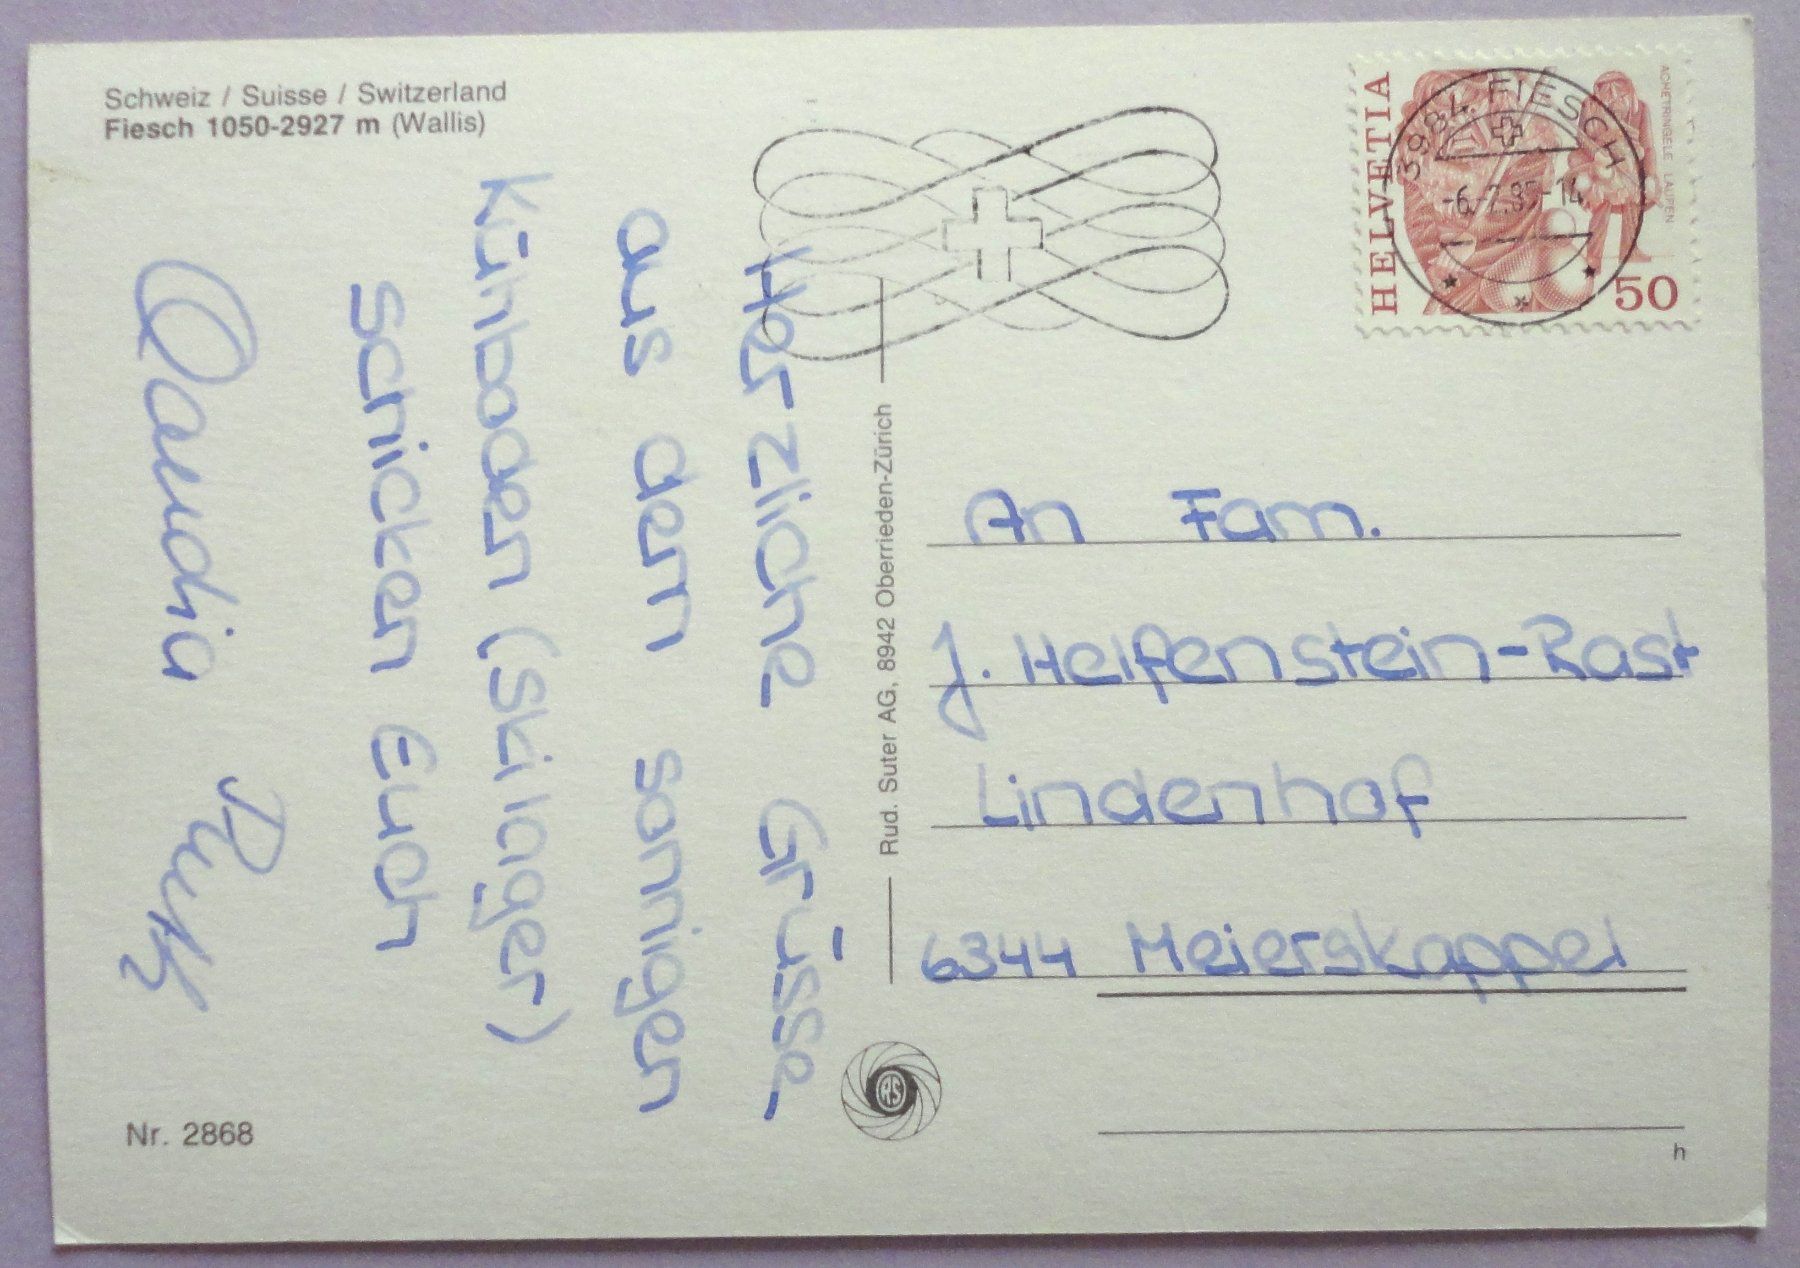 Schweiz / Suisse / Switzerland
Fiesch 1050-2927 m (Wallis)
Herzliche Grüsse
aus dem sonnigen
Kühboden (Skilager)
schicken Euch
Claudia Ruth
Nr. 2868
Rud. Suter AG, 8942 Oberrieden-Zürich
HELVETIA
50
ACHETRINGELE LAUPEN
3984 FIESCH
-6.-2.85-14
An Fam.
J. Helfenstein-Rast
Lindenhof
6344 Meierskappel
RS
h